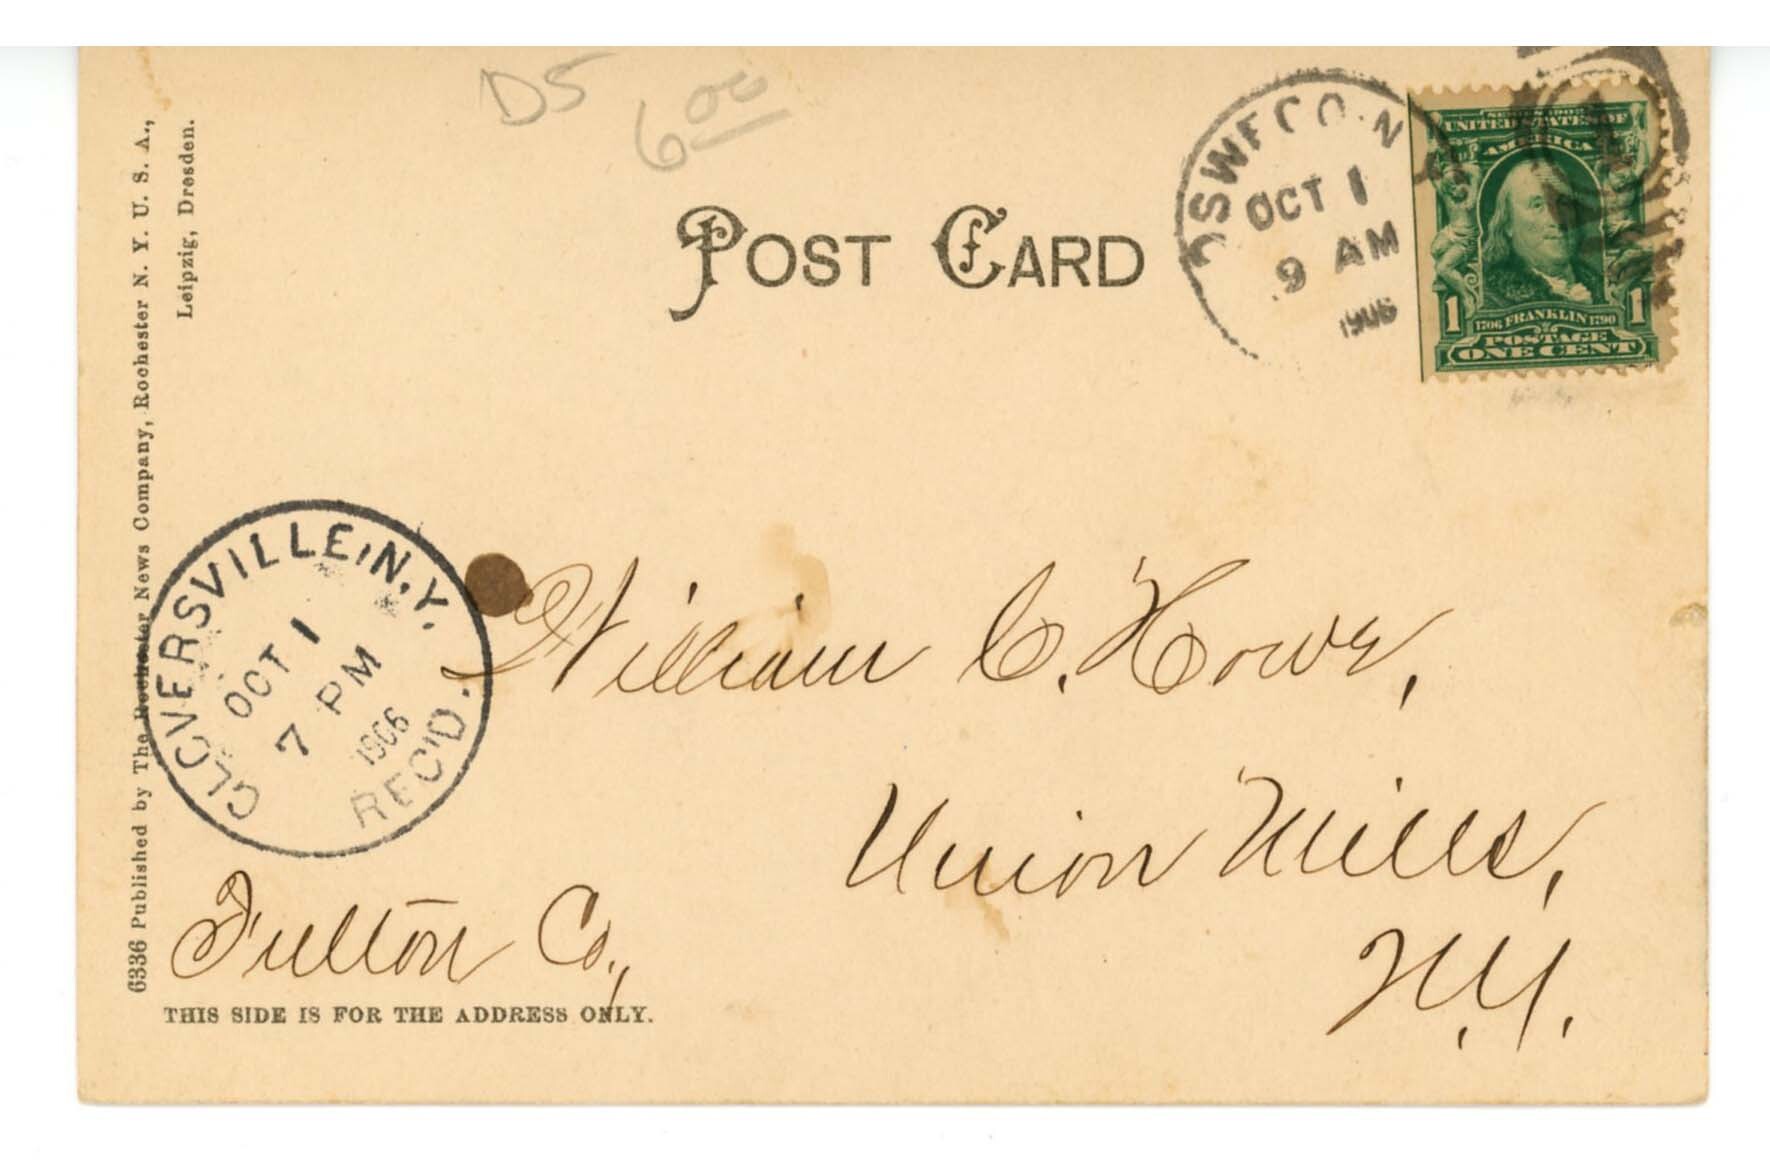 D5
6.00
POST CARD
OSWEGO. N.Y.
OCT 1
9 AM
1906
SERIES 1902
UNITED STATES OF
AMERICA
1 1
1706 FRANKLIN 1790
POSTAGE
ONE CENT
6336 Published by The Rochester News Company, Rochester N. Y. U. S. A.,
Leipzig, Dresden.
GLOVERSVILLE, N.Y.
OCT 1
7 PM
1906
REC'D.
William C. Howe,
Union Mills,
Fulton Co.,
N.Y.
THIS SIDE IS FOR THE ADDRESS ONLY.